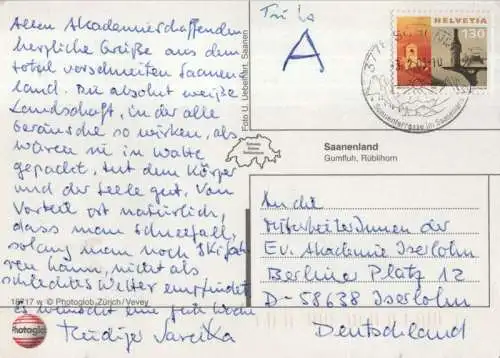 Allen Akademieschaffenden
herzliche Grüße aus dem
total verschneiten Saanen-
land. Die absolut weiße
Landschaft, in der alle
Geräusche so wirken, als
wären sie in Watte
gepackt, tut dem Körper
und der Seele gut. Von
Vorteil ist natürlich,
dass man Schneefall,
solang man noch Skifah-
ren kann, nicht als
schlechtes Wetter empfindet
Es wünscht eine gute Woche
Rüdiger
16717 w © Photoglob, Zürich / Vevey
Photoglob
Foto U. Uebelhart, Saanen
A
HELVETIA
130
Sonnenterrasse im Saanenland
Saanenland
Gumfluh, Rüblihorn
An die
MitarbeiterInnen der
Ev. Akademie Iserlohn
Berliner Platz 12
D-58638 Iserlohn
Deutschland